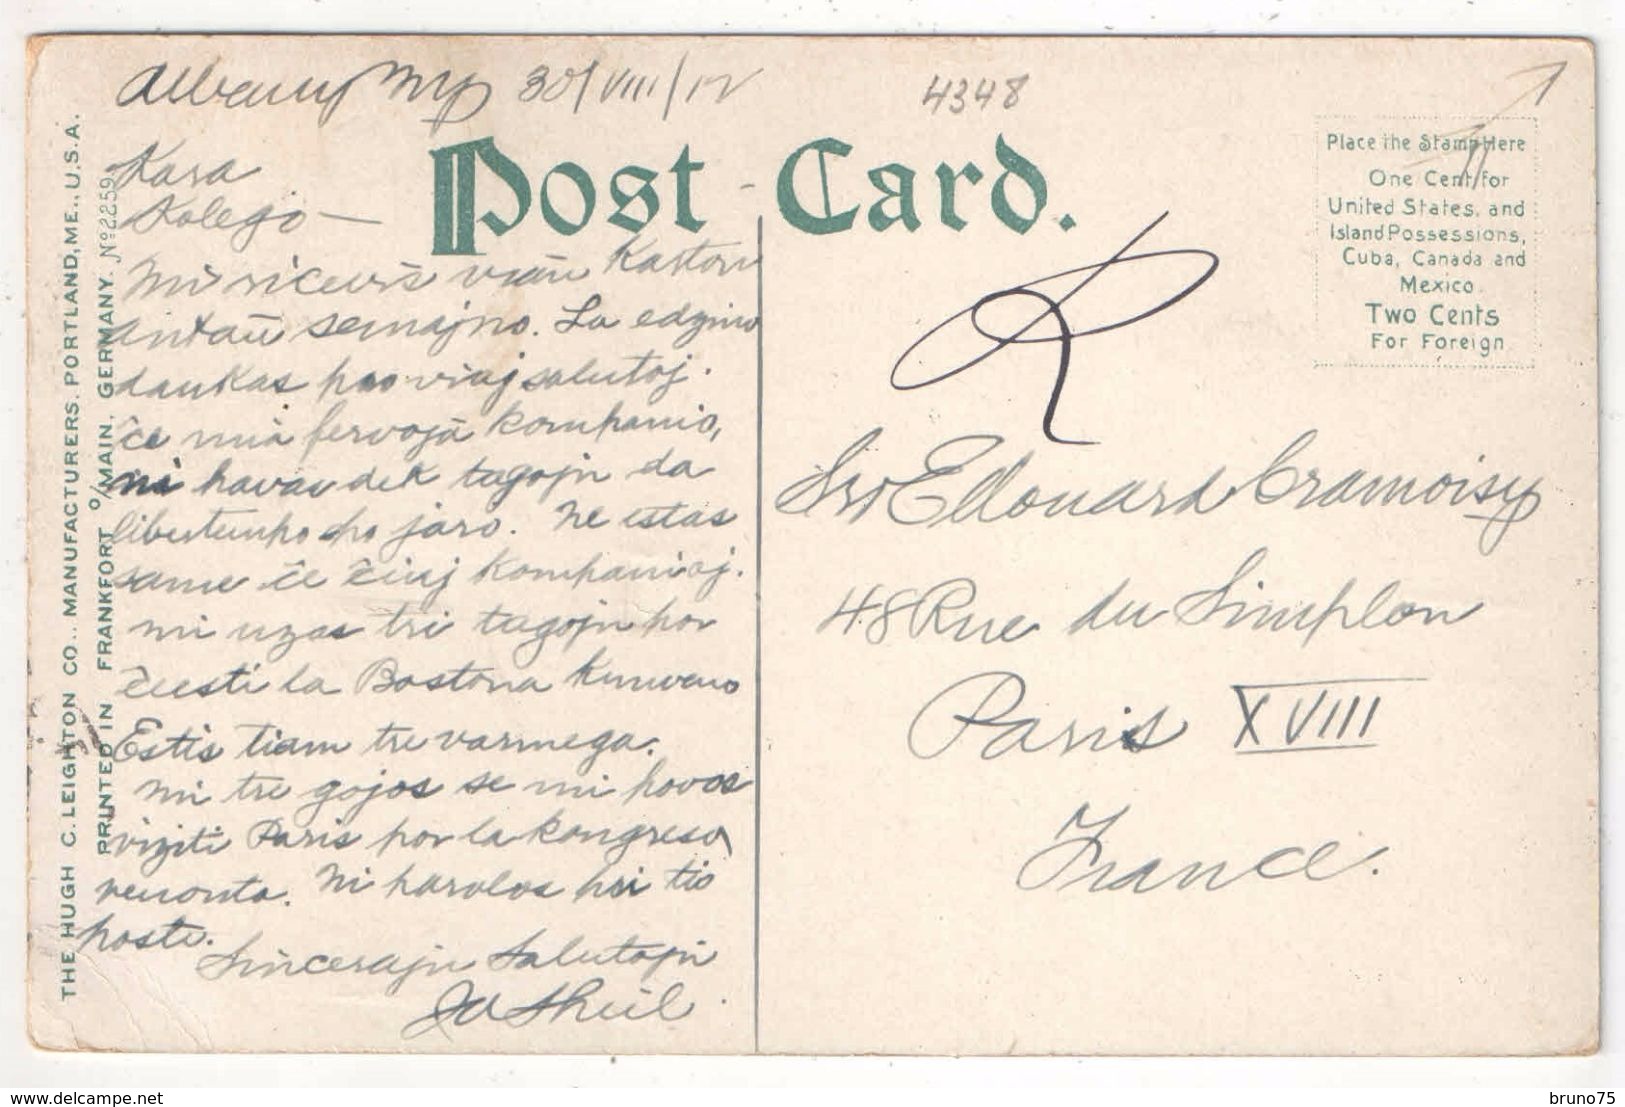 Albany NY 30/VIII/12
4348
THE HUGH C. LEIGHTON CO.. MANUFACTURERS. PORTLAND, ME., U.S.A.
PRINTED IN FRANKFORT o/MAIN, GERMANY. No 2259
Post Card.
Place the Stamp Here
One Cent for
United States, and
Island Possessions,
Cuba, Canada and
Mexico
Two Cents
For Foreign
Kara
Kolego —
Mi ricevis vian karton
antaŭ semajno. La edzino
dankas pro viaj salutoj.
Ĉe mia fervoja kompanio,
ni havas dek tagojn da
libertempo po jaro. Ne estas
same ĉe ĉiuj kompanioj.
Mi uzas tri tagojn por
ĉeesti la Bostona kunveno
Estis tiam tre varmega.
Mi tre gojos se mi povos
viziti Paris por la kongreso
venonta. Ni parolos pri tio
poste.
Sincerajn Salutojn
R
Sro Edouard Cramoisy
48 Rue du Simplon
Paris XVIII
France.
www.delcampe.net
bruno75